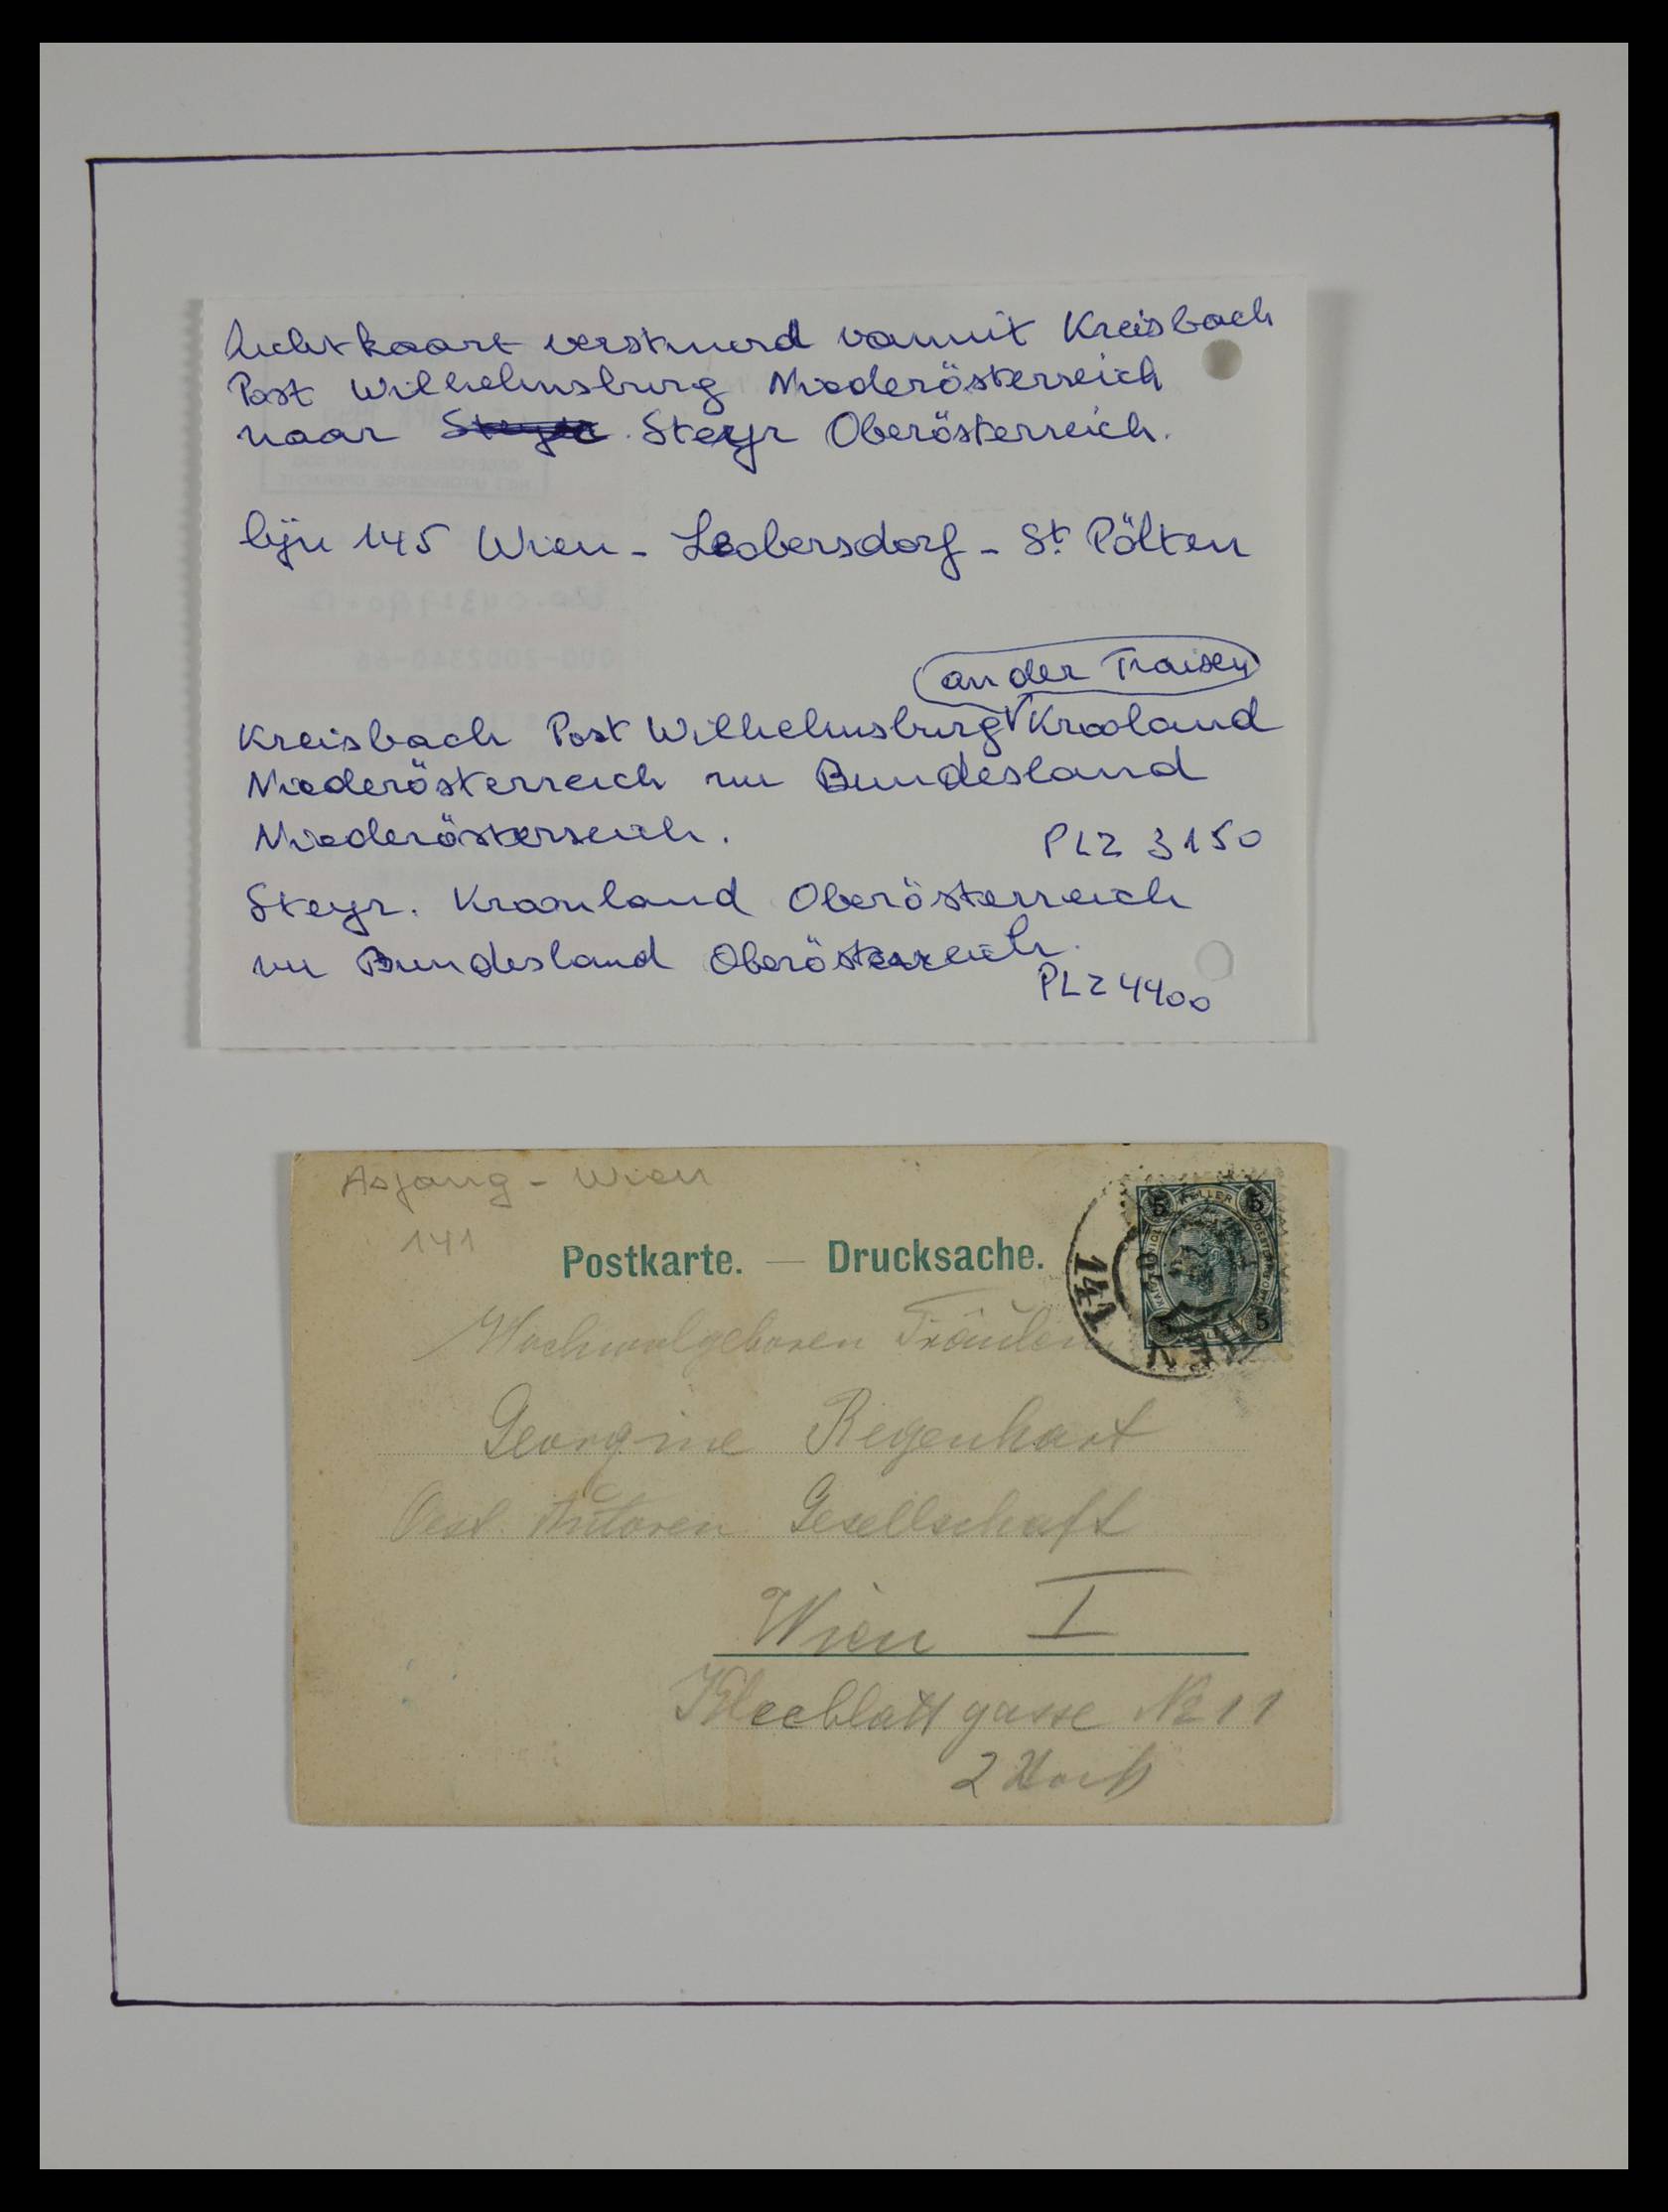 Lichtkaart verstuurd vanuit Kreisbach
Post Wilhelmsburg Niederösterreich
naar Steyr Steyr Oberösterreich.
lijn 145 Wien - Leobersdorf - St. Pölten
an der Traisen
Kreisbach Post Wilhelmsburg Kroоland
Niederösterreich nu Bundesland
Niederösterreich.
PLZ 3150
Steyr. Kroonland Oberösterreich
nu Bundesland Oberösterreich.
PLZ 4400
Aspang - Wien
141
Postkarte. — Drucksache.
5 HELLER 5
141
WIEN
5 5
Hochwolgeboren Fräulein
Georgine Regenhart
Oest. Autoren Gesellschaft
Wien I
Kleeblattgasse № 11
2 Stock